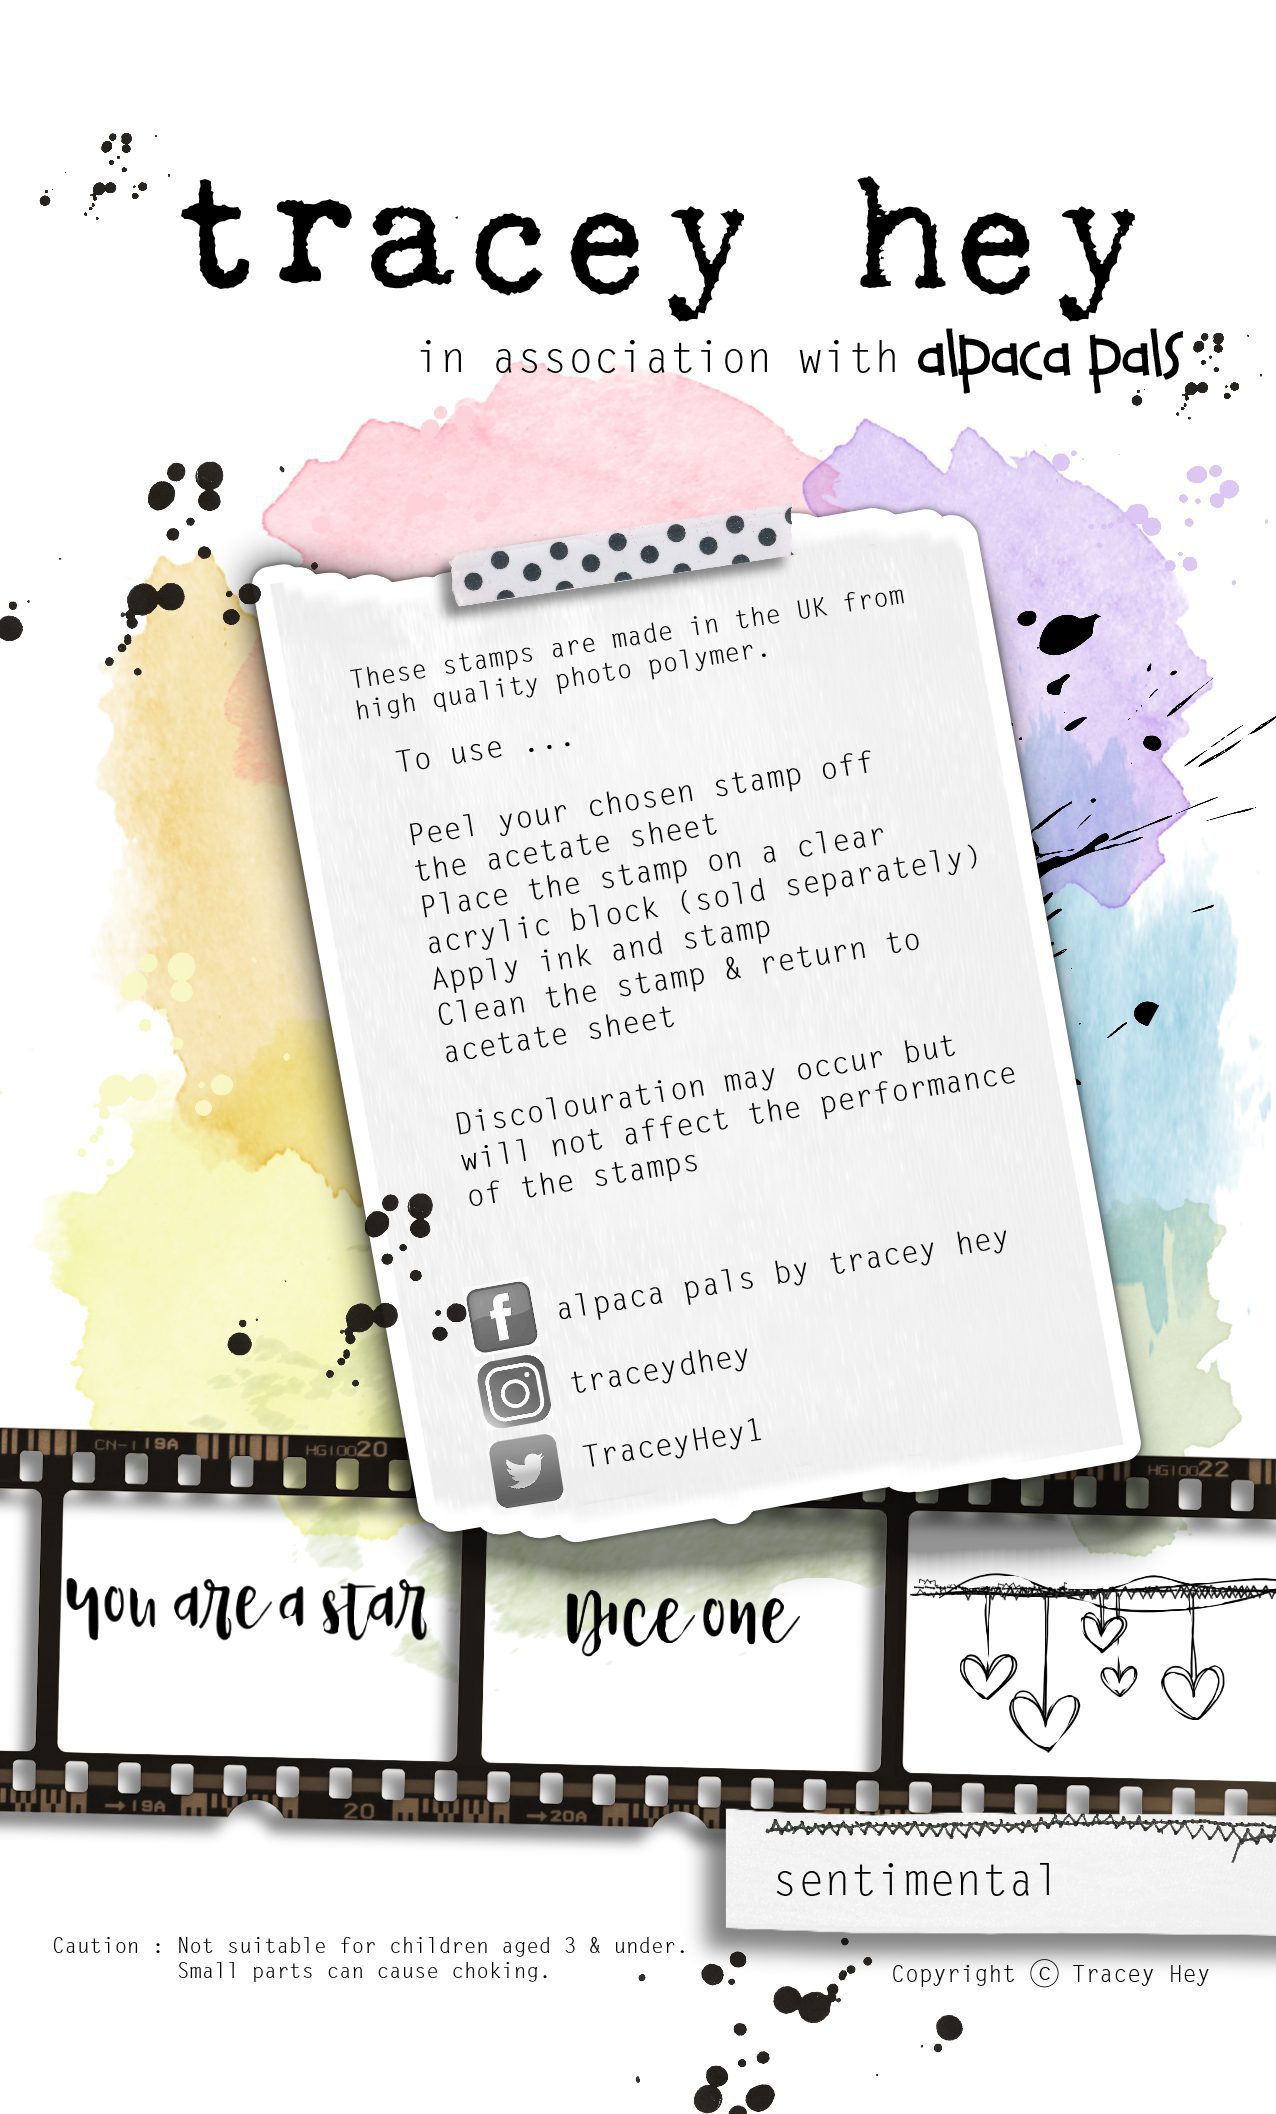 tracey hey
in association with alpaca pals
These stamps are made in the UK from
high quality photo polymer.
To use ...
Peel your chosen stamp off
the acetate sheet
Place the stamp on a clear
acrylic block (sold separately)
Apply ink and stamp
Clean the stamp & return to
acetate sheet
Discolouration may occur but
will not affect the performance
of the stamps
alpaca pals by tracey hey
traceydhey
TraceyHey1
CN-1 19A
HG10020
HG10022
you are a star
Nice one
→19A
20
→20A
sentimental
Caution : Not suitable for children aged 3 & under.
Small parts can cause choking.
Copyright © Tracey Hey